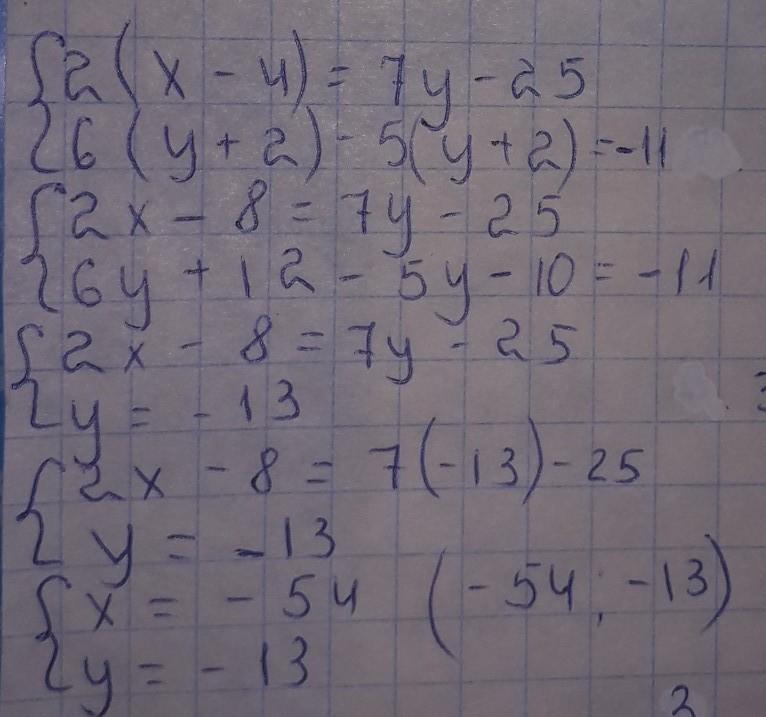 {2(x - 4) = 7y - 25
{6(y + 2) - 5(y + 2) = -11
{2x - 8 = 7y - 25
{6y + 12 - 5y - 10 = -11
{2x - 8 = 7y - 25
{y = -13
{2x - 8 = 7(-13) - 25
{y = -13
{x = -54 (-54; -13)
{y = -13